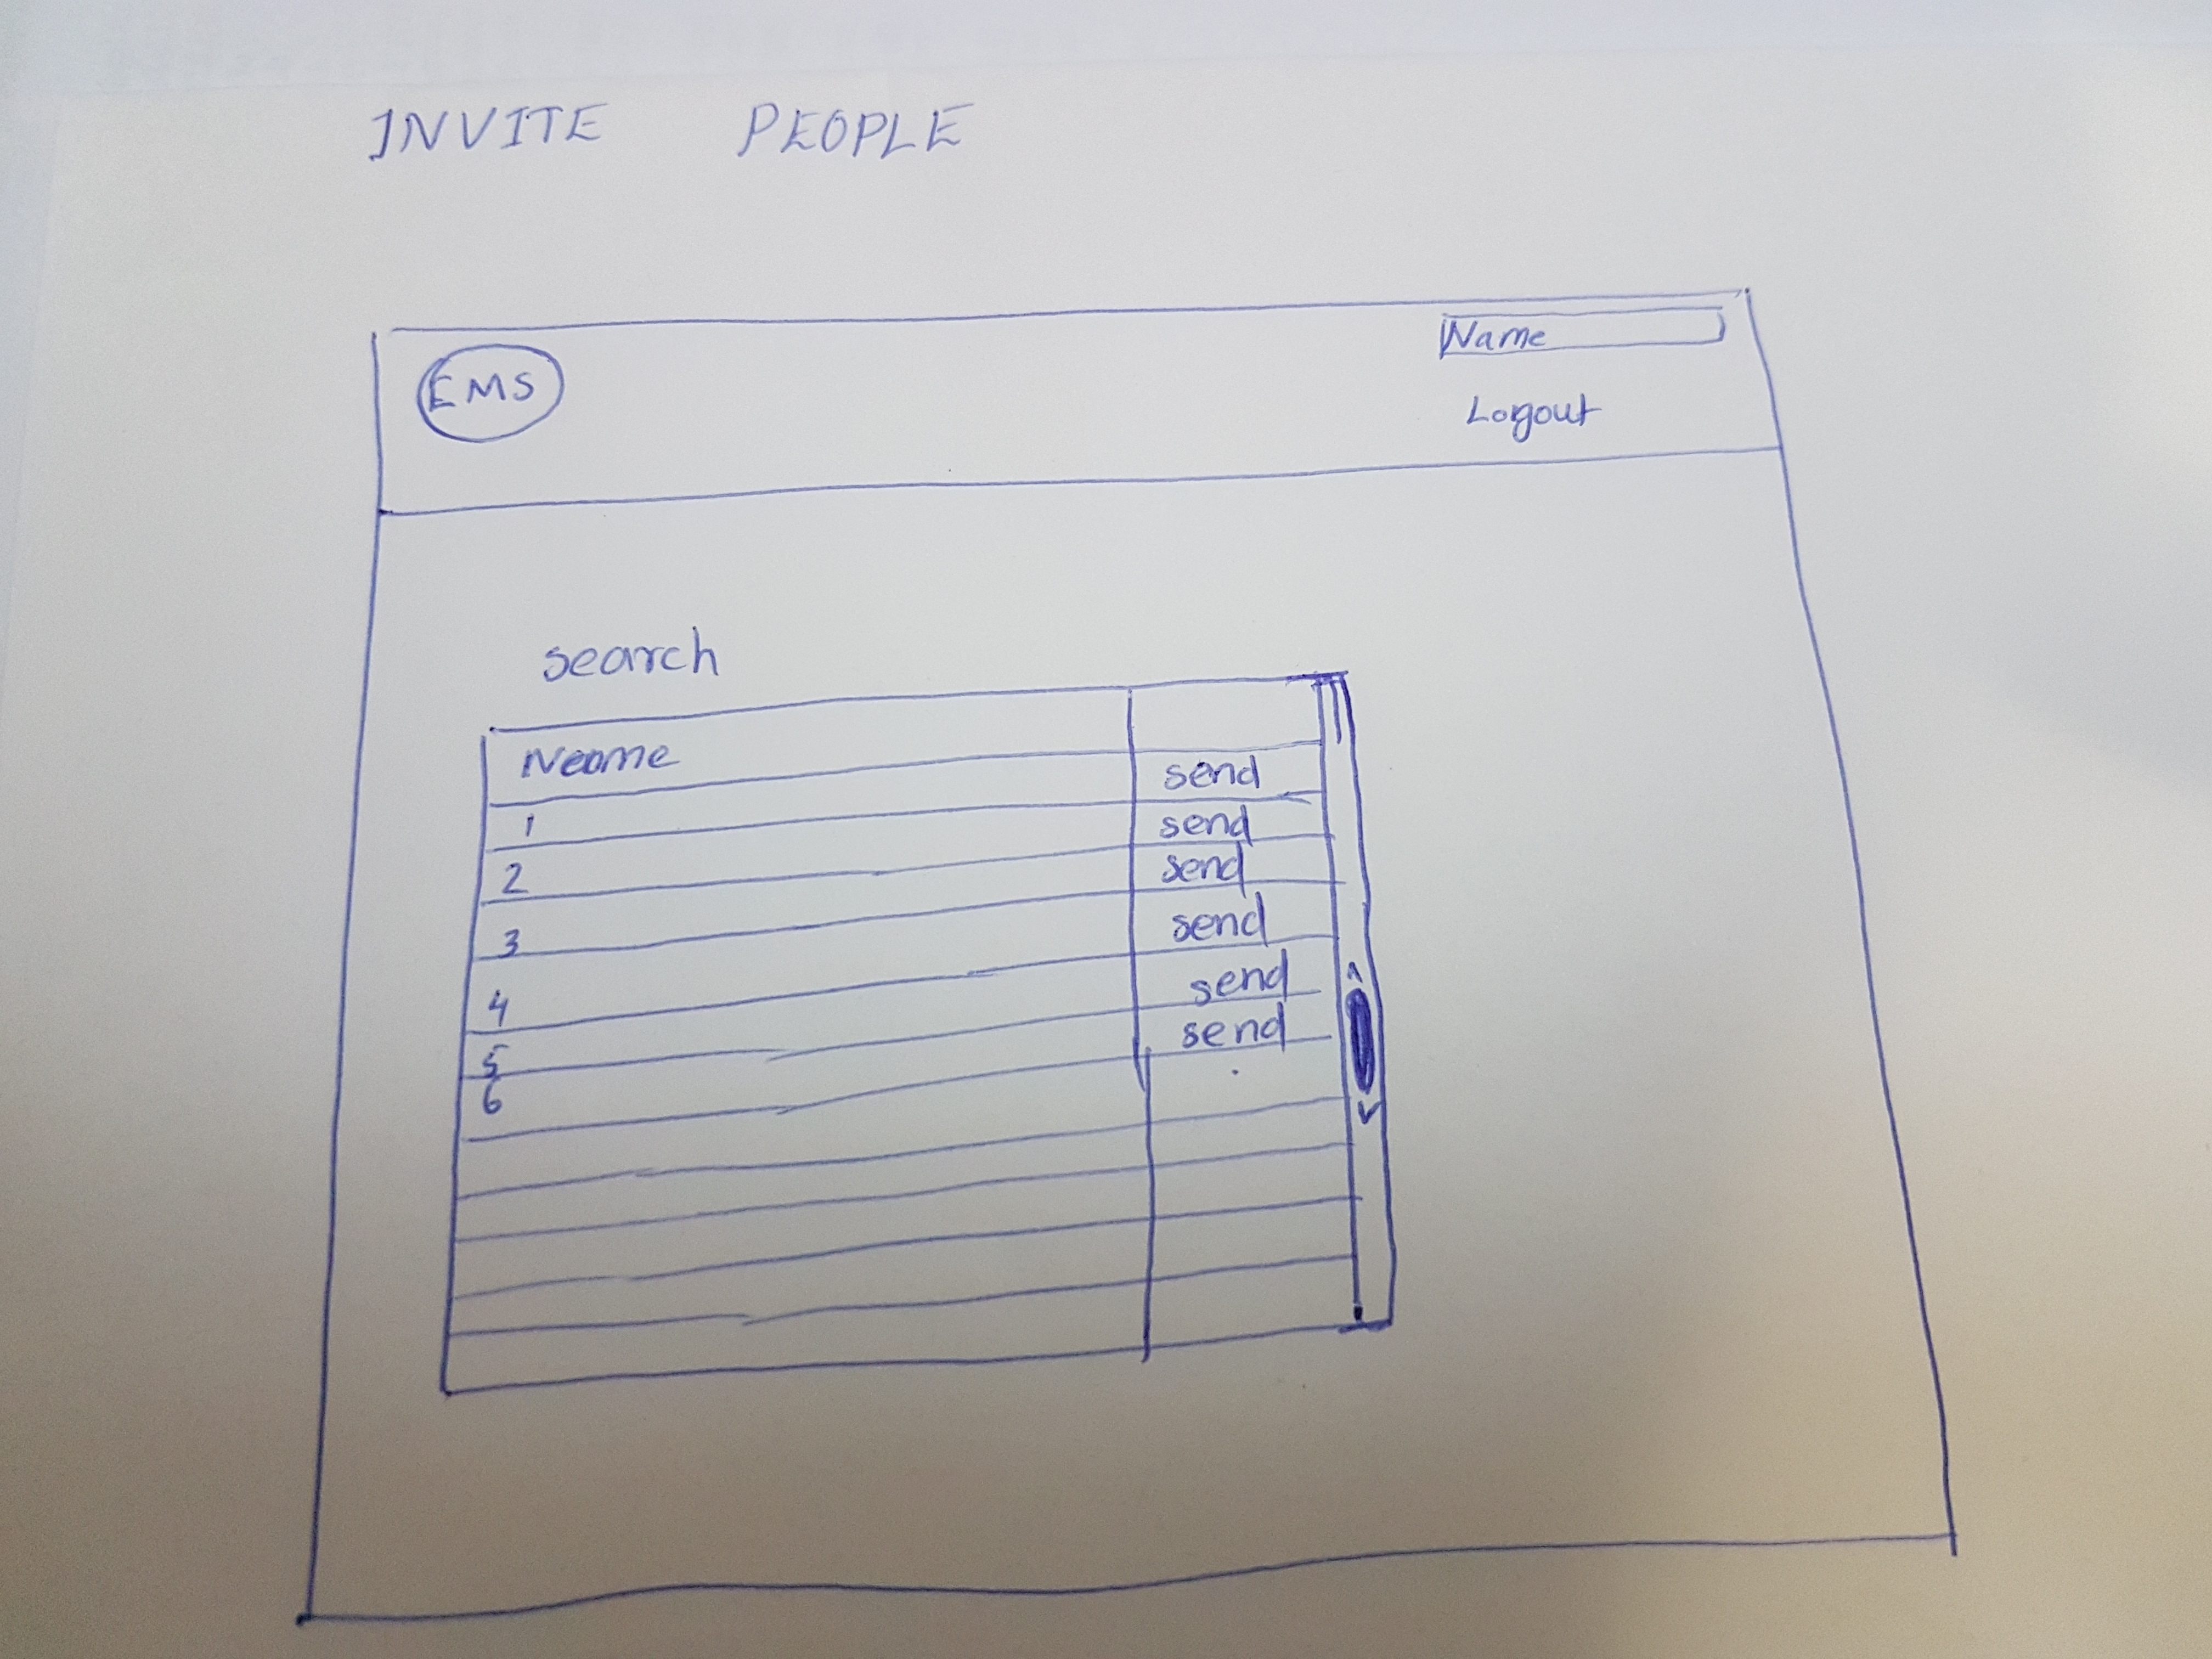 INVITE PEOPLE
EMS
Name
Logout
search
Name
send
1 send
2 send
3 send
4 send
5 send
6